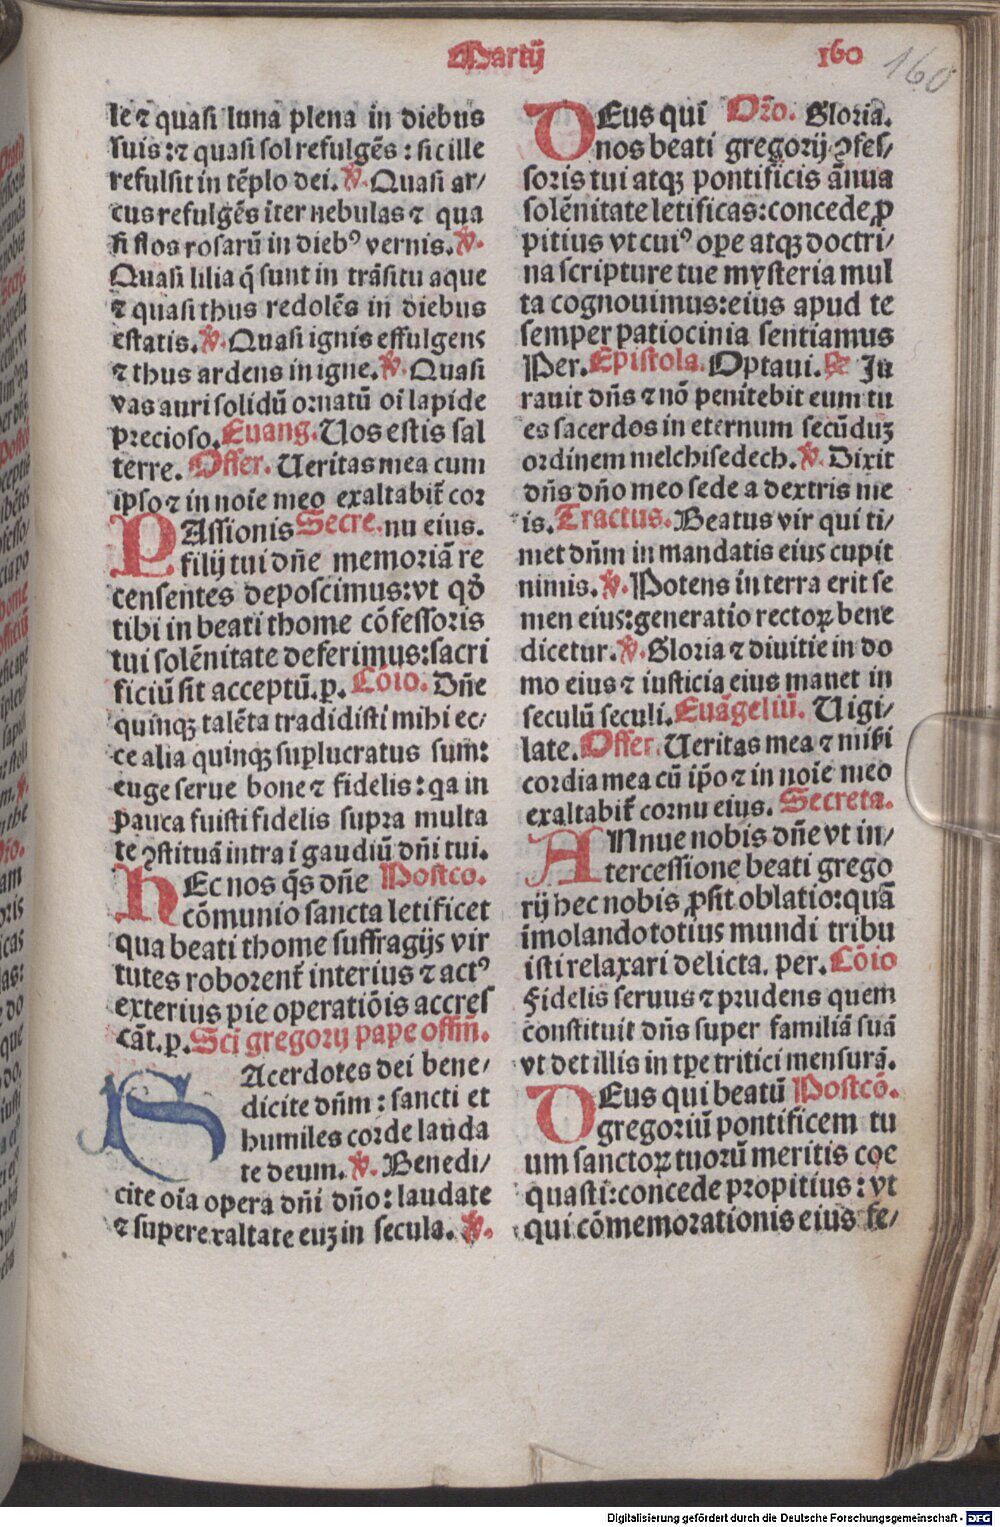 Martij
160
160
le ⁊ quasi luna plena in diebus
suis: ⁊ quasi sol refulgēs: sic ille
refulsit in tēplo dei. ℣. Quasi ar/
cus refulgēs iter nebulas ⁊ qua
si flos rosarū in diebꝰ vernis. ℣.
Quasi lilia q̄ sunt in trāsitu aque
⁊ quasi thus redolēs in diebus
estatis. ℣. Quasi ignis effulgens
⁊ thus ardens in igne. ℣. Quasi
vas auri solidū ornatū oī lapide
precioso. Euang. Uos estis sal
terre. Offer. Ueritas mea cum
ipso ⁊ in noīe meo exaltabit̄ cor
PAssionis Secre. nu eius.
filij tui dn̄e memoriā re
censentes deposcimus: vt qd̄
tibi in beati thome cōfessoris
tui solēnitate deferimus: sacri
ficiū sit acceptū. p. Cōio. Dn̄e
quinqꝫ talēta tradidisti mihi ec/
ce alia quinqꝫ suꝑlucratus sum:
euge serue bone ⁊ fidelis: qa in
pauca fuisti fidelis supra multa
te ꝯstituā intra ī gaudiū dn̄i tui.
HEc nos q̄s dn̄e Postco.
cōmunio sancta letificet
qua beati thome suffragijs vir
tutes roborent̄ interius ⁊ actꝰ
exterius pie operatiōis accres
cāt. p. Sci gregorij pape offim̄.
SAcerdotes dei bene/
dicite dn̄m: sancti et
humiles corde lauda
te deum. ℣. Benedi/
cite oīa opera dn̄i dn̄o: laudate
⁊ superexaltate euꝫ in secula. ℣.
DEus qui Or̄o. Gloria.
nos beati gregorij ꝯfes/
soris tui atqꝫ pontificis ānua
solēnitate letificas: concede ꝓ
pitius vt cuiꝰ ope atqꝫ doctri/
na scripture tue mysteria mul
ta cognouimus: eius apud te
semper patiocinia sentiamus
Per. Epistola. Optaui. ℞ Ju
rauit dn̄s ⁊ nō penitebit eum tu
es sacerdos in eternum secūduꝫ
ordinem melchisedech. ℣. Dixit
dn̄s dn̄o meo sede a dextris me
is. Tractus. Beatus vir qui ti/
met dn̄m in mandatis eius cupit
nimis. ℣. Potens in terra erit se
men eius: generatio rectoꝝ bene
dicetur. ℣. Gloria ⁊ diuitie in do
mo eius ⁊ iusticia eius manet in
seculū seculi. Euāgeliū. Uigi/
late. Offer. Ueritas mea ⁊ miẜi
cordia mea cū ip̄o ⁊ in noīe meo
exaltabit̄ cornu eius. Secreta.
ANnue nobis dn̄e vt in/
tercessione beati grego
rij hec nobis ꝓsit oblatio: quā
īmolando totius mundi tribu
isti relaxari delicta. per. Cōio
Fidelis seruus ⁊ prudens quem
constituit dn̄s super familiā suā
vt det illis in tꝑe tritici mensurā.
DEus qui beatū Postcō.
gregoriū pontificem tu
um sanctoꝝ tuorū meritis coe
quasti: concede propitius: vt
qui cōmemorationis eius fe/
Digitalisierung gefördert durch die Deutsche Forschungsgemeinschaft - DFG